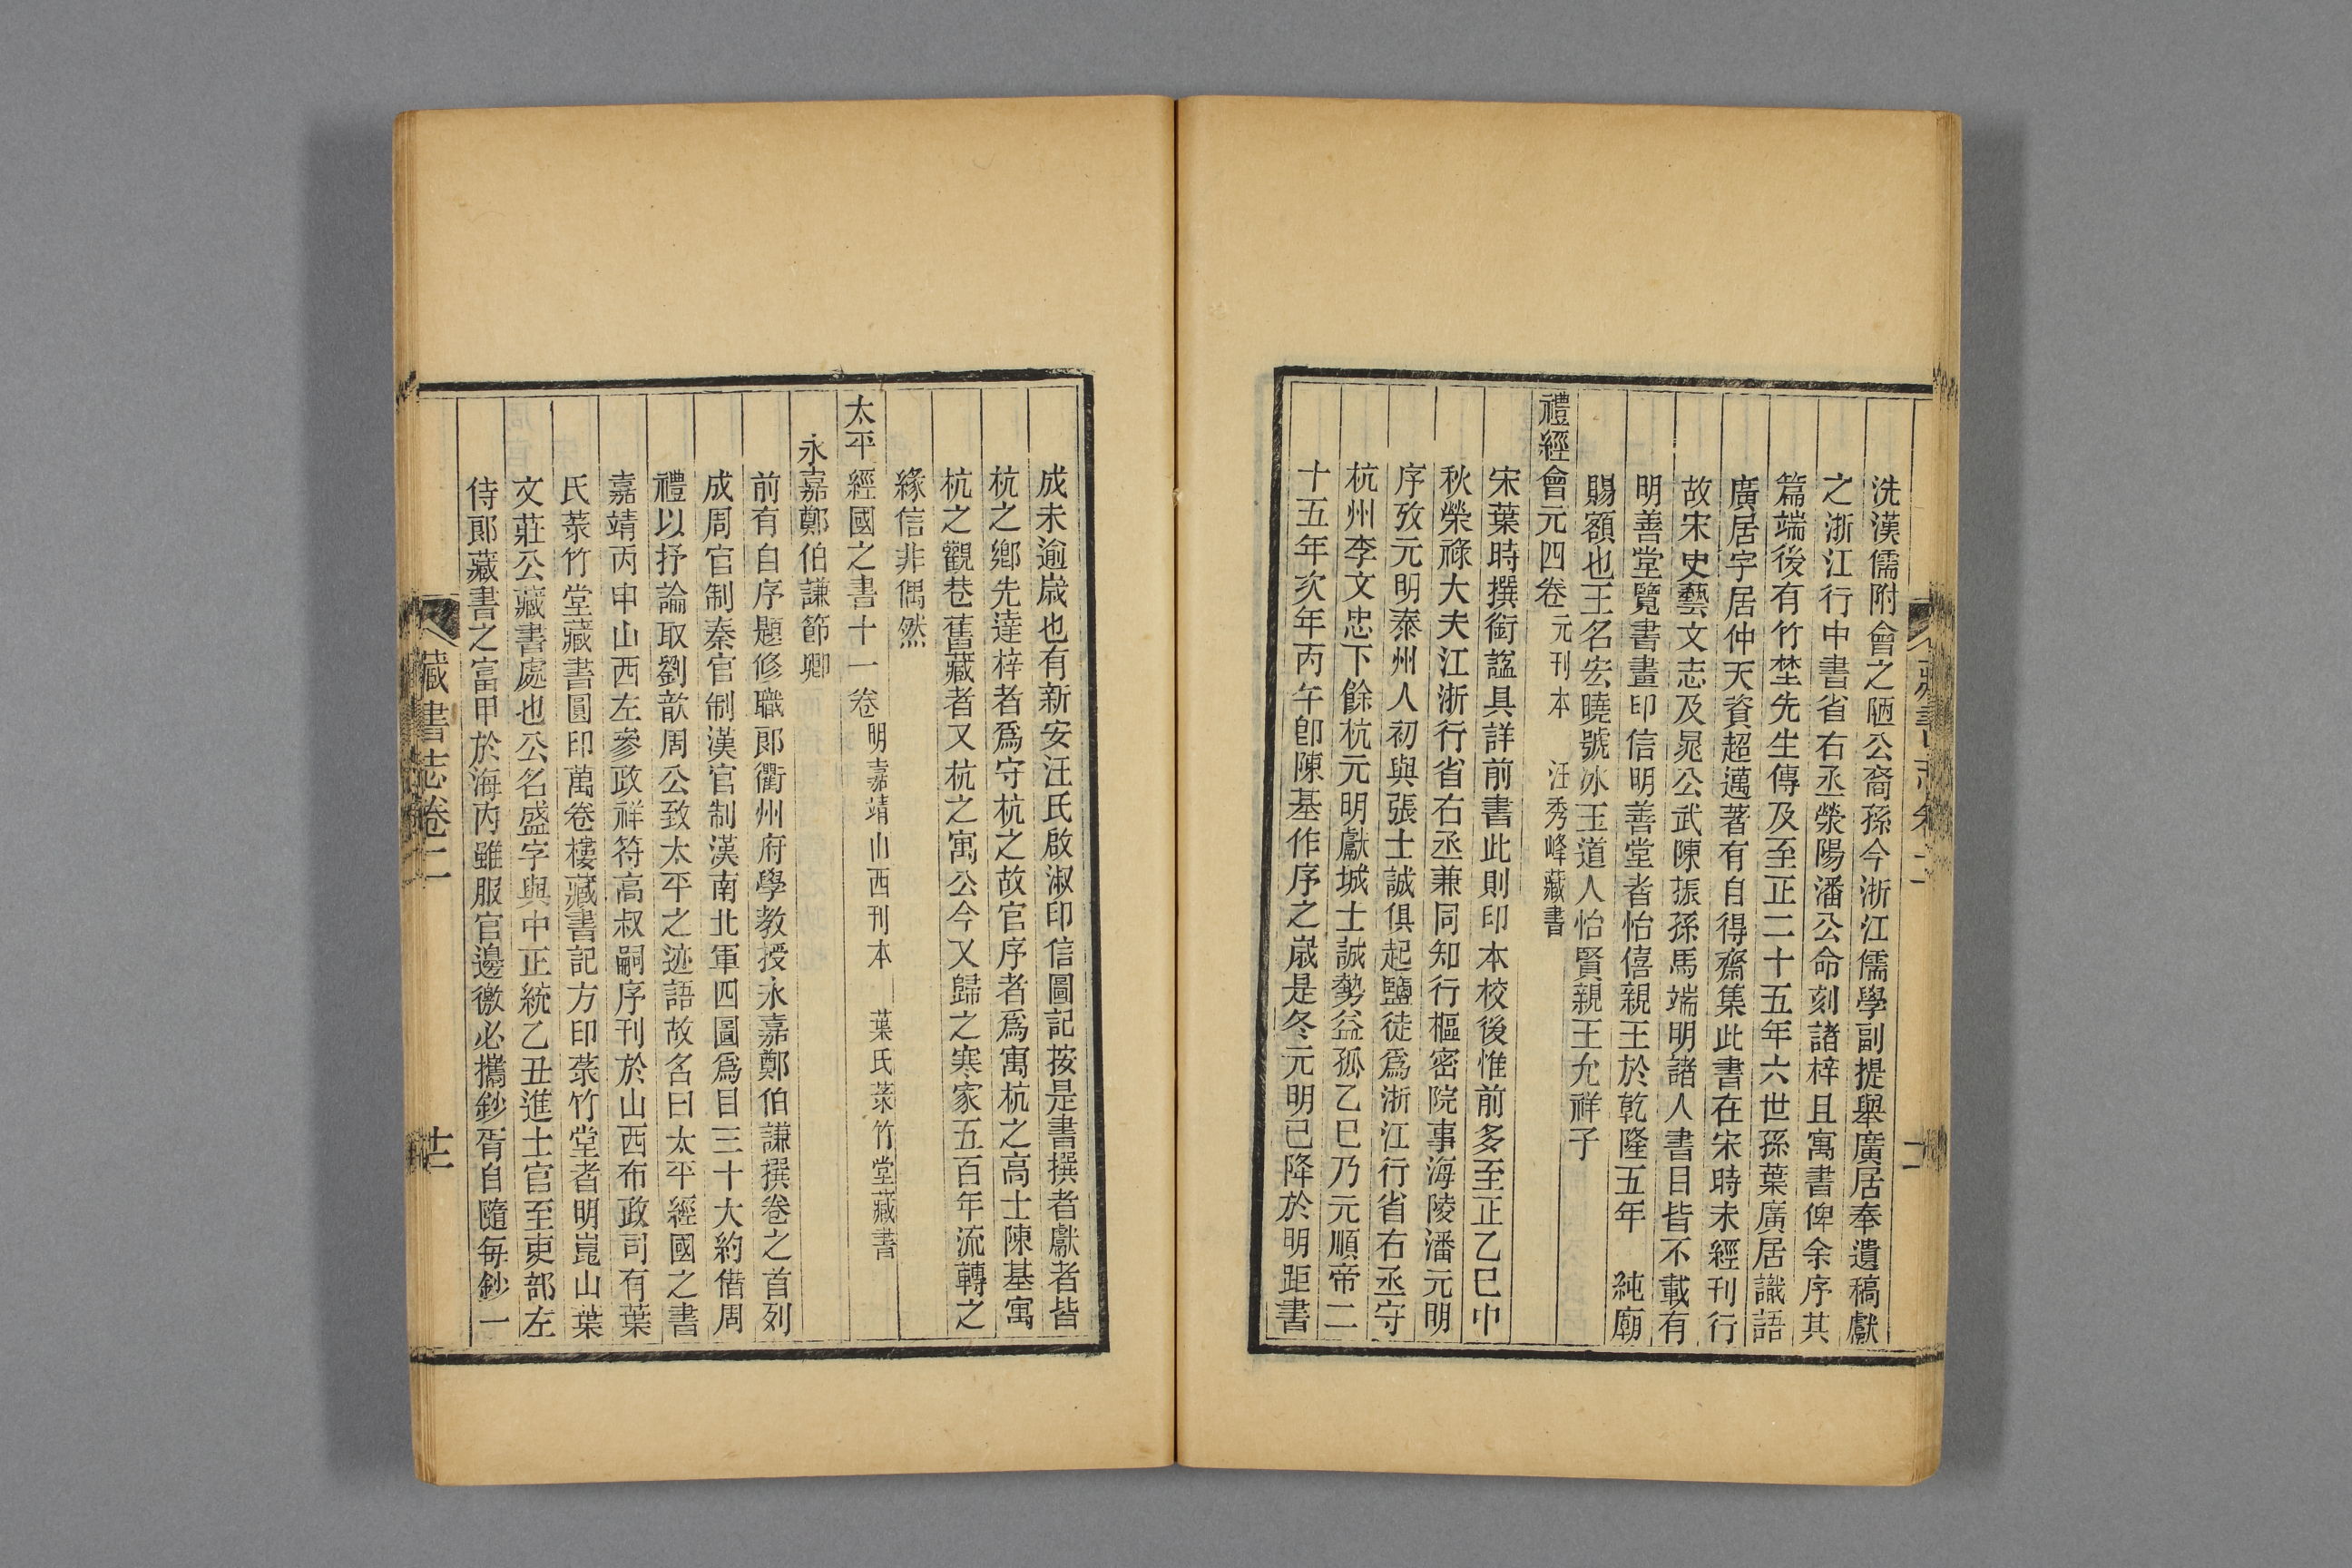 洗漢儒附會之陋公裔孫今浙江儒學副提舉廣居奉遺稿獻
之浙江行中書省右丞滎陽潘公命刻諸梓且寓書俾余序其
篇端後有竹埜先生傳及至正二十五年六世孫葉廣居識語
廣居字居仲天資超邁著有自得齋集此書在宋時未經刊行
故宋史藝文志及晁公武陳振孫馬端明諸人書目皆不載有
明善堂覽書畫印信明善堂者怡僖親王於乾隆五年 純廟
賜額也王名宏曉號冰玉道人怡賢親王允祥子
禮經會元四卷 元刊本 汪秀峰藏書
宋葉時撰銜謚具詳前書此則印本校後惟前多至正乙巳中
秋榮祿大夫江浙行省右丞兼同知行樞密院事海陵潘元明
序攷元明泰州人初與張士誠俱起鹽徒爲浙江行省右丞守
杭州李文忠下餘杭元明獻城士誠勢益孤乙巳乃元順帝二
十五年次年丙午卽陳基作序之歲是冬元明已降於明距書
成未逾歲也有新安汪氏啟淑印信圖記按是書撰者獻者皆
杭之鄉先達梓者爲守杭之故官序者爲寓杭之高士陳基寓
杭之觀巷舊藏者又杭之寓公今又歸之寒家五百年流轉之
緣信非偶然
太平經國之書十一卷 明嘉靖山西刊本 葉氏菉竹堂藏書
永嘉鄭伯謙節卿
前有自序題修職郎衢州府學教授永嘉鄭伯謙撰卷之首列
成周官制秦官制漢官制漢南北軍四圖爲目三十大約借周
禮以抒論取劉歆周公致太平之迹語故名曰太平經國之書
嘉靖丙申山西左參政祥符高叔嗣序刊於山西布政司有葉
氏菉竹堂藏書圓印萬卷樓藏書記方印菉竹堂者明崑山葉
文莊公藏書處也公名盛字與中正統乙丑進士官至吏部左
侍郎藏書之富甲於海內雖服官邊徼必攜鈔胥自隨每鈔一
藏書志卷二